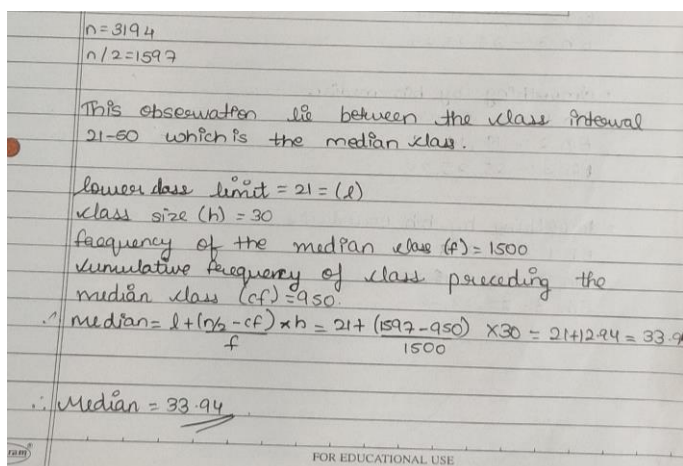 n = 3194
n/2 = 1597
This observation lie between the class interval
21-60 which is the median class.
lower class limit = 21 = (l)
class size (h) = 30
frequency of the median class (f) = 1500
cumulative frequency of class preceding the
median class (cf) = 950.
∴ median = l + (n/2 - cf) × h = 21 + (1597 - 950) × 30 = 21 + 12.94 = 33.9
f 1500
∴ Median = 33.94
ram
FOR EDUCATIONAL USE